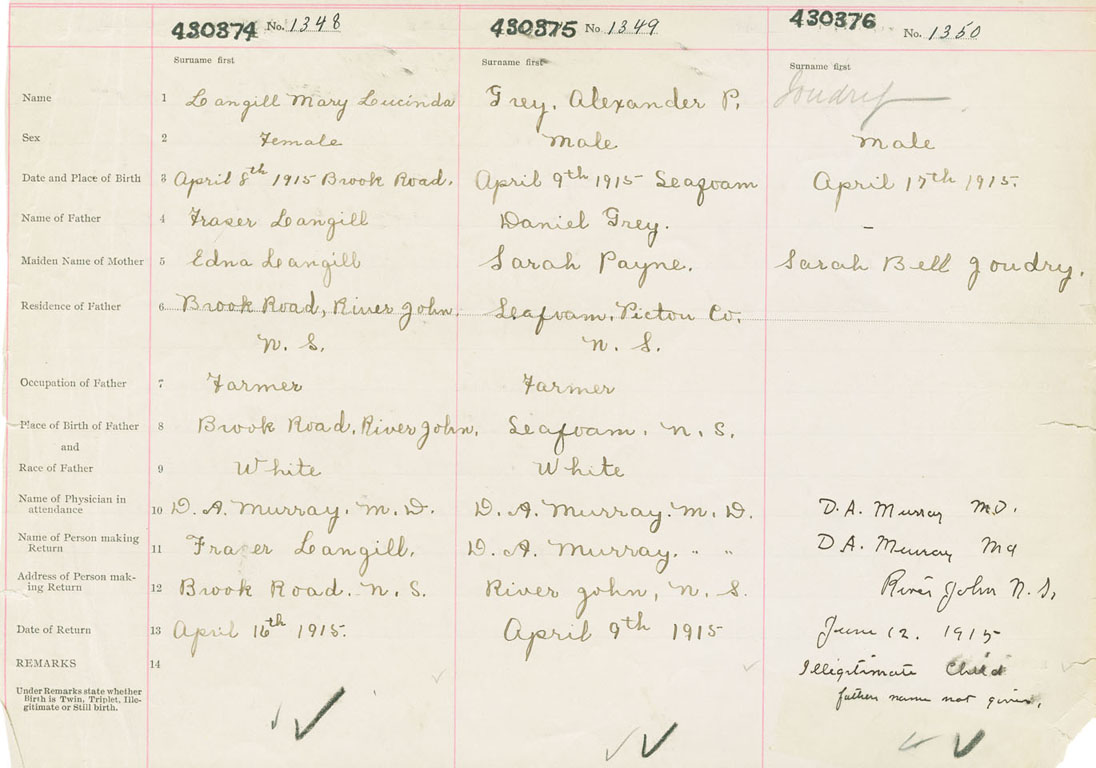 430374 No. 1348 430375 No 1349 430376 No. 1350
Surname first Surname first Surname first
Name 1 Langill Mary Lucinda Grey, Alexander P. Joudry
Sex 2 Female Male Male
Date and Place of Birth 3 April 8th 1915 Brook Road. April 9th 1915 Seafoam April 17th 1915.
Name of Father 4 Fraser Langill Daniel Grey. –
Maiden Name of Mother 5 Edna Langill Sarah Payne. Sarah Bell Joudry.
Residence of Father 6 Brook Road, River John. Seafoam, Pictou Co.
N. S. N. S.
Occupation of Father 7 Farmer Farmer
Place of Birth of Father 8 Brook Road, River John. Seafoam. N. S.
and
Race of Father 9 White White
Name of Physician in
attendance 10 D. A. Murray. M. D. D. A. Murray. M. D. D. A. Murray MD.
Name of Person making
Return 11 Fraser Langill. D. A. Murray. " " D A. Murray Md
Address of Person mak-
ing Return 12 Brook Road. N. S. River John, N. S. River John N. S.
Date of Return 13 April 16th 1915. April 9th 1915 June 12. 1915
REMARKS 14 Illigitimate Child
Under Remarks state whether
Birth is Twin, Triplet, Ille-
gitimate or Still birth.
fathers name not given.